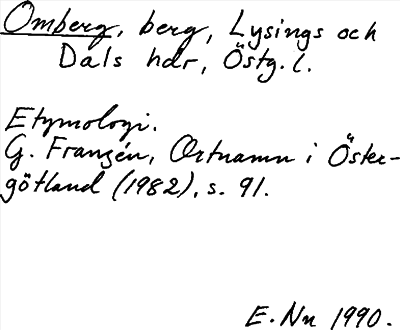 Omberg, berg, Lysings och
Dals hdr, Östg. l.
Etymologi.
G. Franzén, Ortnamn i Öster-
götland (1982), s. 91.
E. Nn 1990.